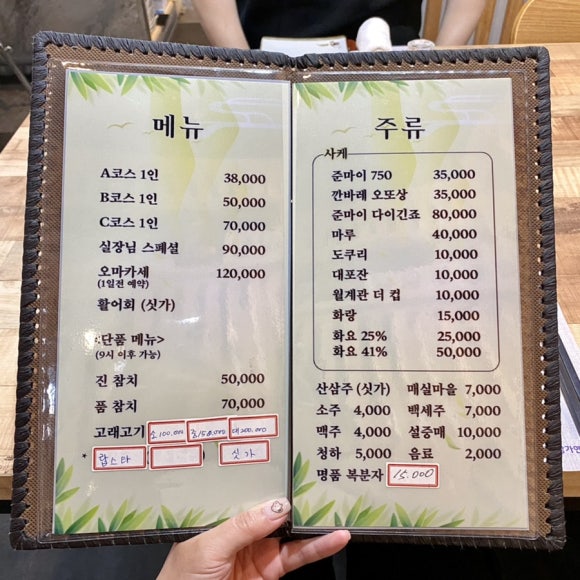 메뉴
A코스 1인 38,000
B코스 1인 50,000
C코스 1인 70,000
실장님 스페셜 90,000
오마카세 120,000
(1일전 예약)
활어회 (싯가)
<단품 메뉴>
(9시 이후 가능)
진 참치 50,000
품 참치 70,000
고래고기 소100.000 중150.000 대200.000
* 랍스타 싯가
주류
사케
준마이 750 35,000
깐바레 오또상 35,000
준마이 다이긴죠 80,000
마루 40,000
도쿠리 10,000
대포잔 10,000
월계관 더 컵 10,000
화랑 15,000
화요 25% 25,000
화요 41% 50,000
산삼주 (싯가) 매실마을 7,000
소주 4,000 백세주 7,000
맥주 4,000 설중매 10,000
청하 5,000 음료 2,000
명품 복분자 15.000